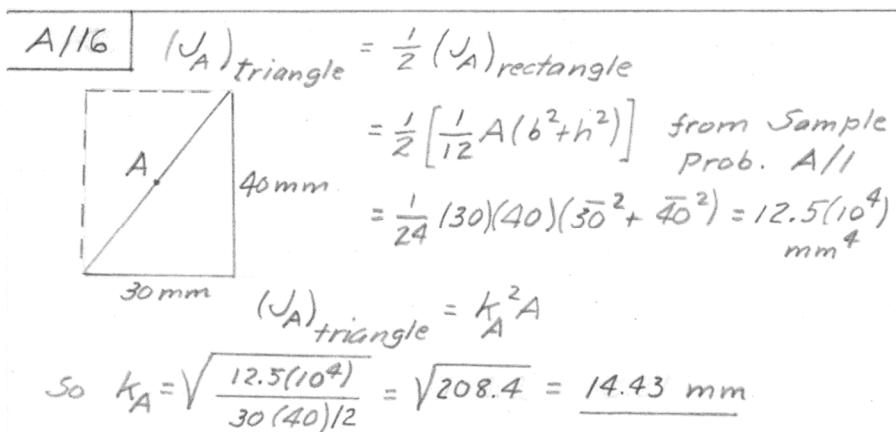 A/16 (J_A)_triangle = 1/2 (J_A)_rectangle
= 1/2 [1/12 A(b²+h²)] from Sample
Prob. A/1
A
40 mm
= 1/24 (30)(40)(30² + 40²) = 12.5(10⁴)
mm⁴
30 mm
(J_A)_triangle = k_A² A
So k_A = √(12.5(10⁴) / 30(40)/2) = √208.4 = 14.43 mm